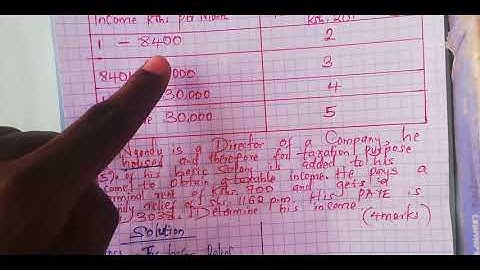 Income Kshs. per Month
Ksh. 20/-
1 - 8400
2
8401 000
3
30,000
4
30,000
5
Ngondu is a Director of a Company, he
housed and therefore for taxation purpose
5% of his basic salary is added to his
to obtain a taxable income. He pays a
nominal rent of Kshs. 700 and gets a
relief of sh. 1162 p.m. His PAYE is
3033. Determine his income
(4marks)
Solution
The